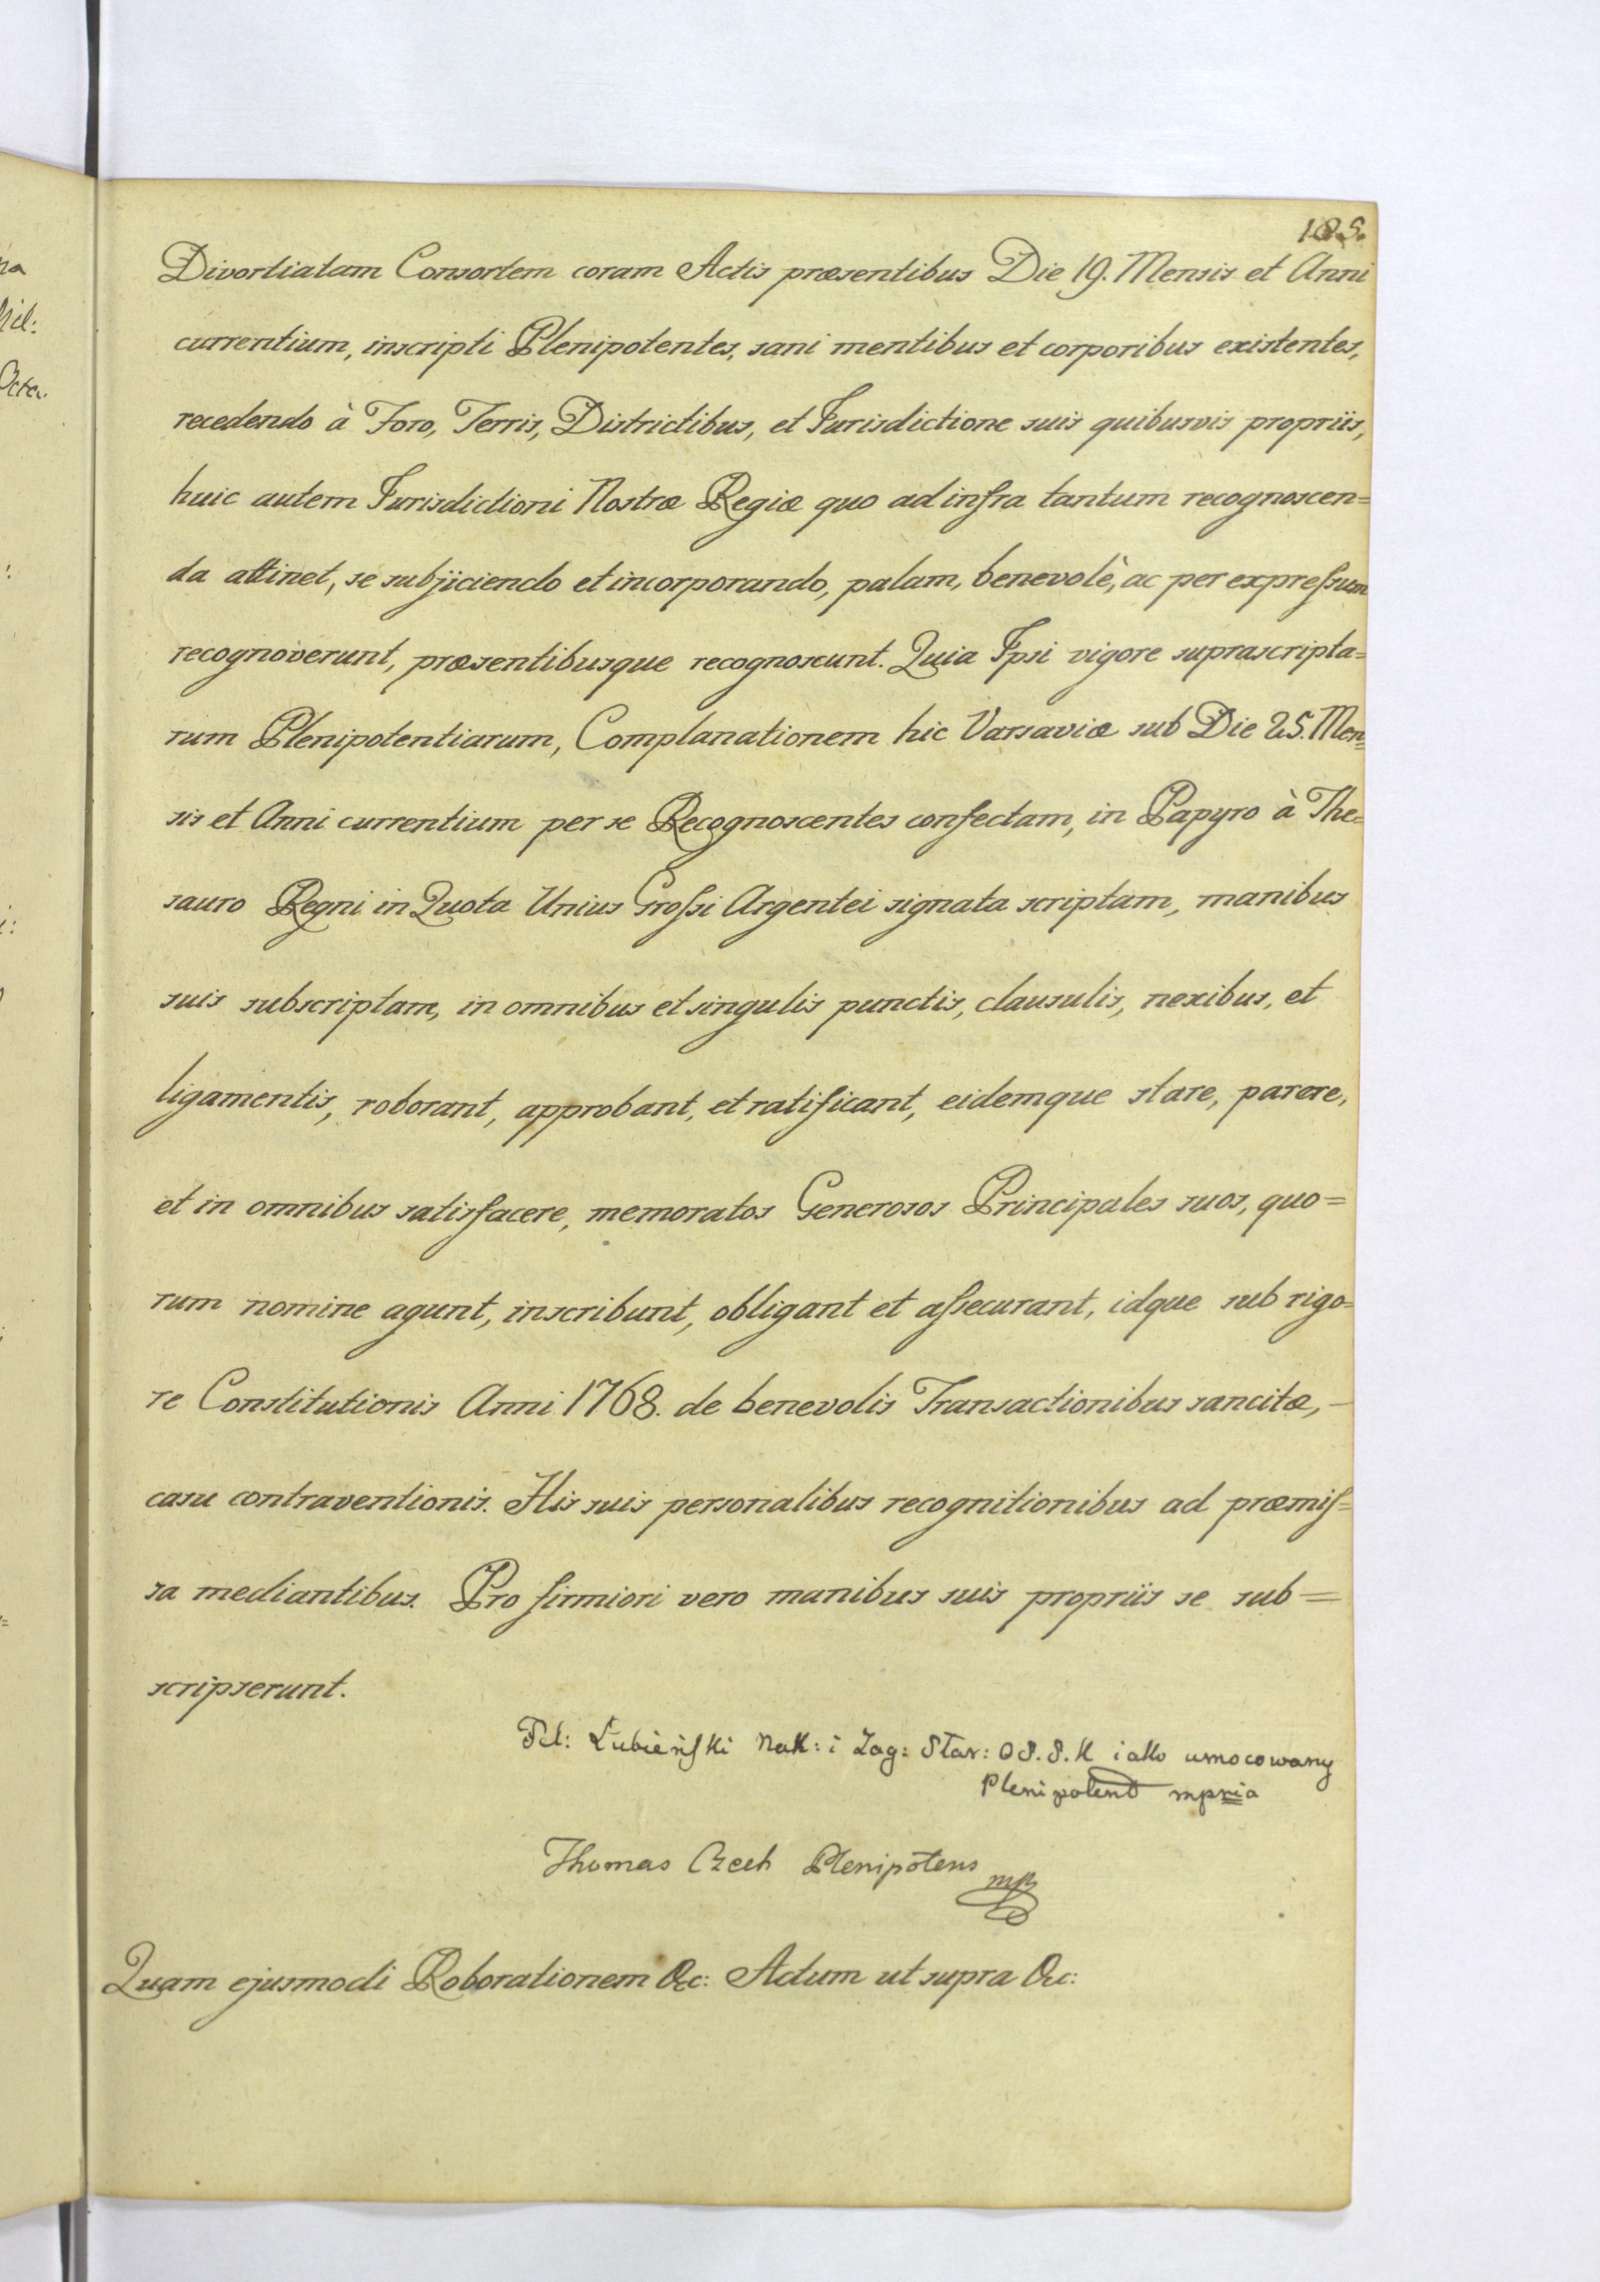 185.
Divortiatam Consortem coram Actis præsentibus Die 19. Mensis et Anni
currentium, inscripti Plenipotentes, sani mentibus et corporibus existentes,
recedendo à Foro, Terris, Districtibus, et Jurisdictione suis quibusvis propriis,
huic autem Jurisdictioni Nostræ Regiæ quo ad infra tantum recognoscen=
da attinet, se subjiciendo et incorporando, palam, benevolè, ac per expreſsum
recognoverunt, præsentibusque recognoscunt. Quia Ipsi vigore suprascripta=
rum Plenipotentiarum, Complanationem hic Varsaviæ sub Die 25. Men=
sis et Anni currentium per se Recognoscentes confectam, in Papyro à The=
sauro Regni in Quota Unius Groſsi Argentei signata scriptam, manibus
suis subscriptam, in omnibus et singulis punctis, clausulis, nexibus, et
ligamentis, roborant, approbant, et ratificant, eidemque stare, parere,
et in omnibus satisfacere, memoratos Generosos Principales suos, quo=
rum nomine agunt, inscribunt, obligant et aſsecurant, idque sub rigo=
re Constitutionis Anni 1768. de benevolis Transactionibus sancitæ, –
casu contraventionis. His suis personalibus recognitionibus ad præmiſ=
sa mediantibus. Pro firmiori vero manibus suis propriis se sub=
scripserunt.
Fel: Łubieńſki Nak: i Zag: Star: O S. S. K iako umocowany
Plenipotent mpria
Thomas Czech Plenipotens mp
Quam ejusmodi Roborationem &c: Actum ut supra &c: